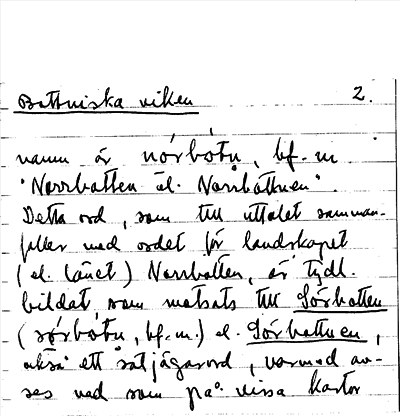 Bottniska viken 2.
namn är nórbótn, bf. m.
"Norrbotten el. Norrbottnen".
Detta ord, som till uttalet samman-
faller med ordet för landskapet
(el. länet) Norrbotten, är tydl.
bildat som motsats till Sörbotten
(sörbotn, bf. m.) el. Sörbottnen,
också ett säljägarord, varmed av-
ses vad som på vissa kartor